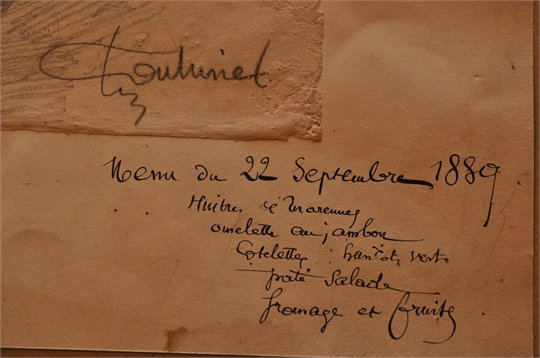 Menu du 22 Septembre 1889.
Huitres de Marennes
omelette au jambon
Cotelettes haricots verts
paté Salade
fromage et fruits